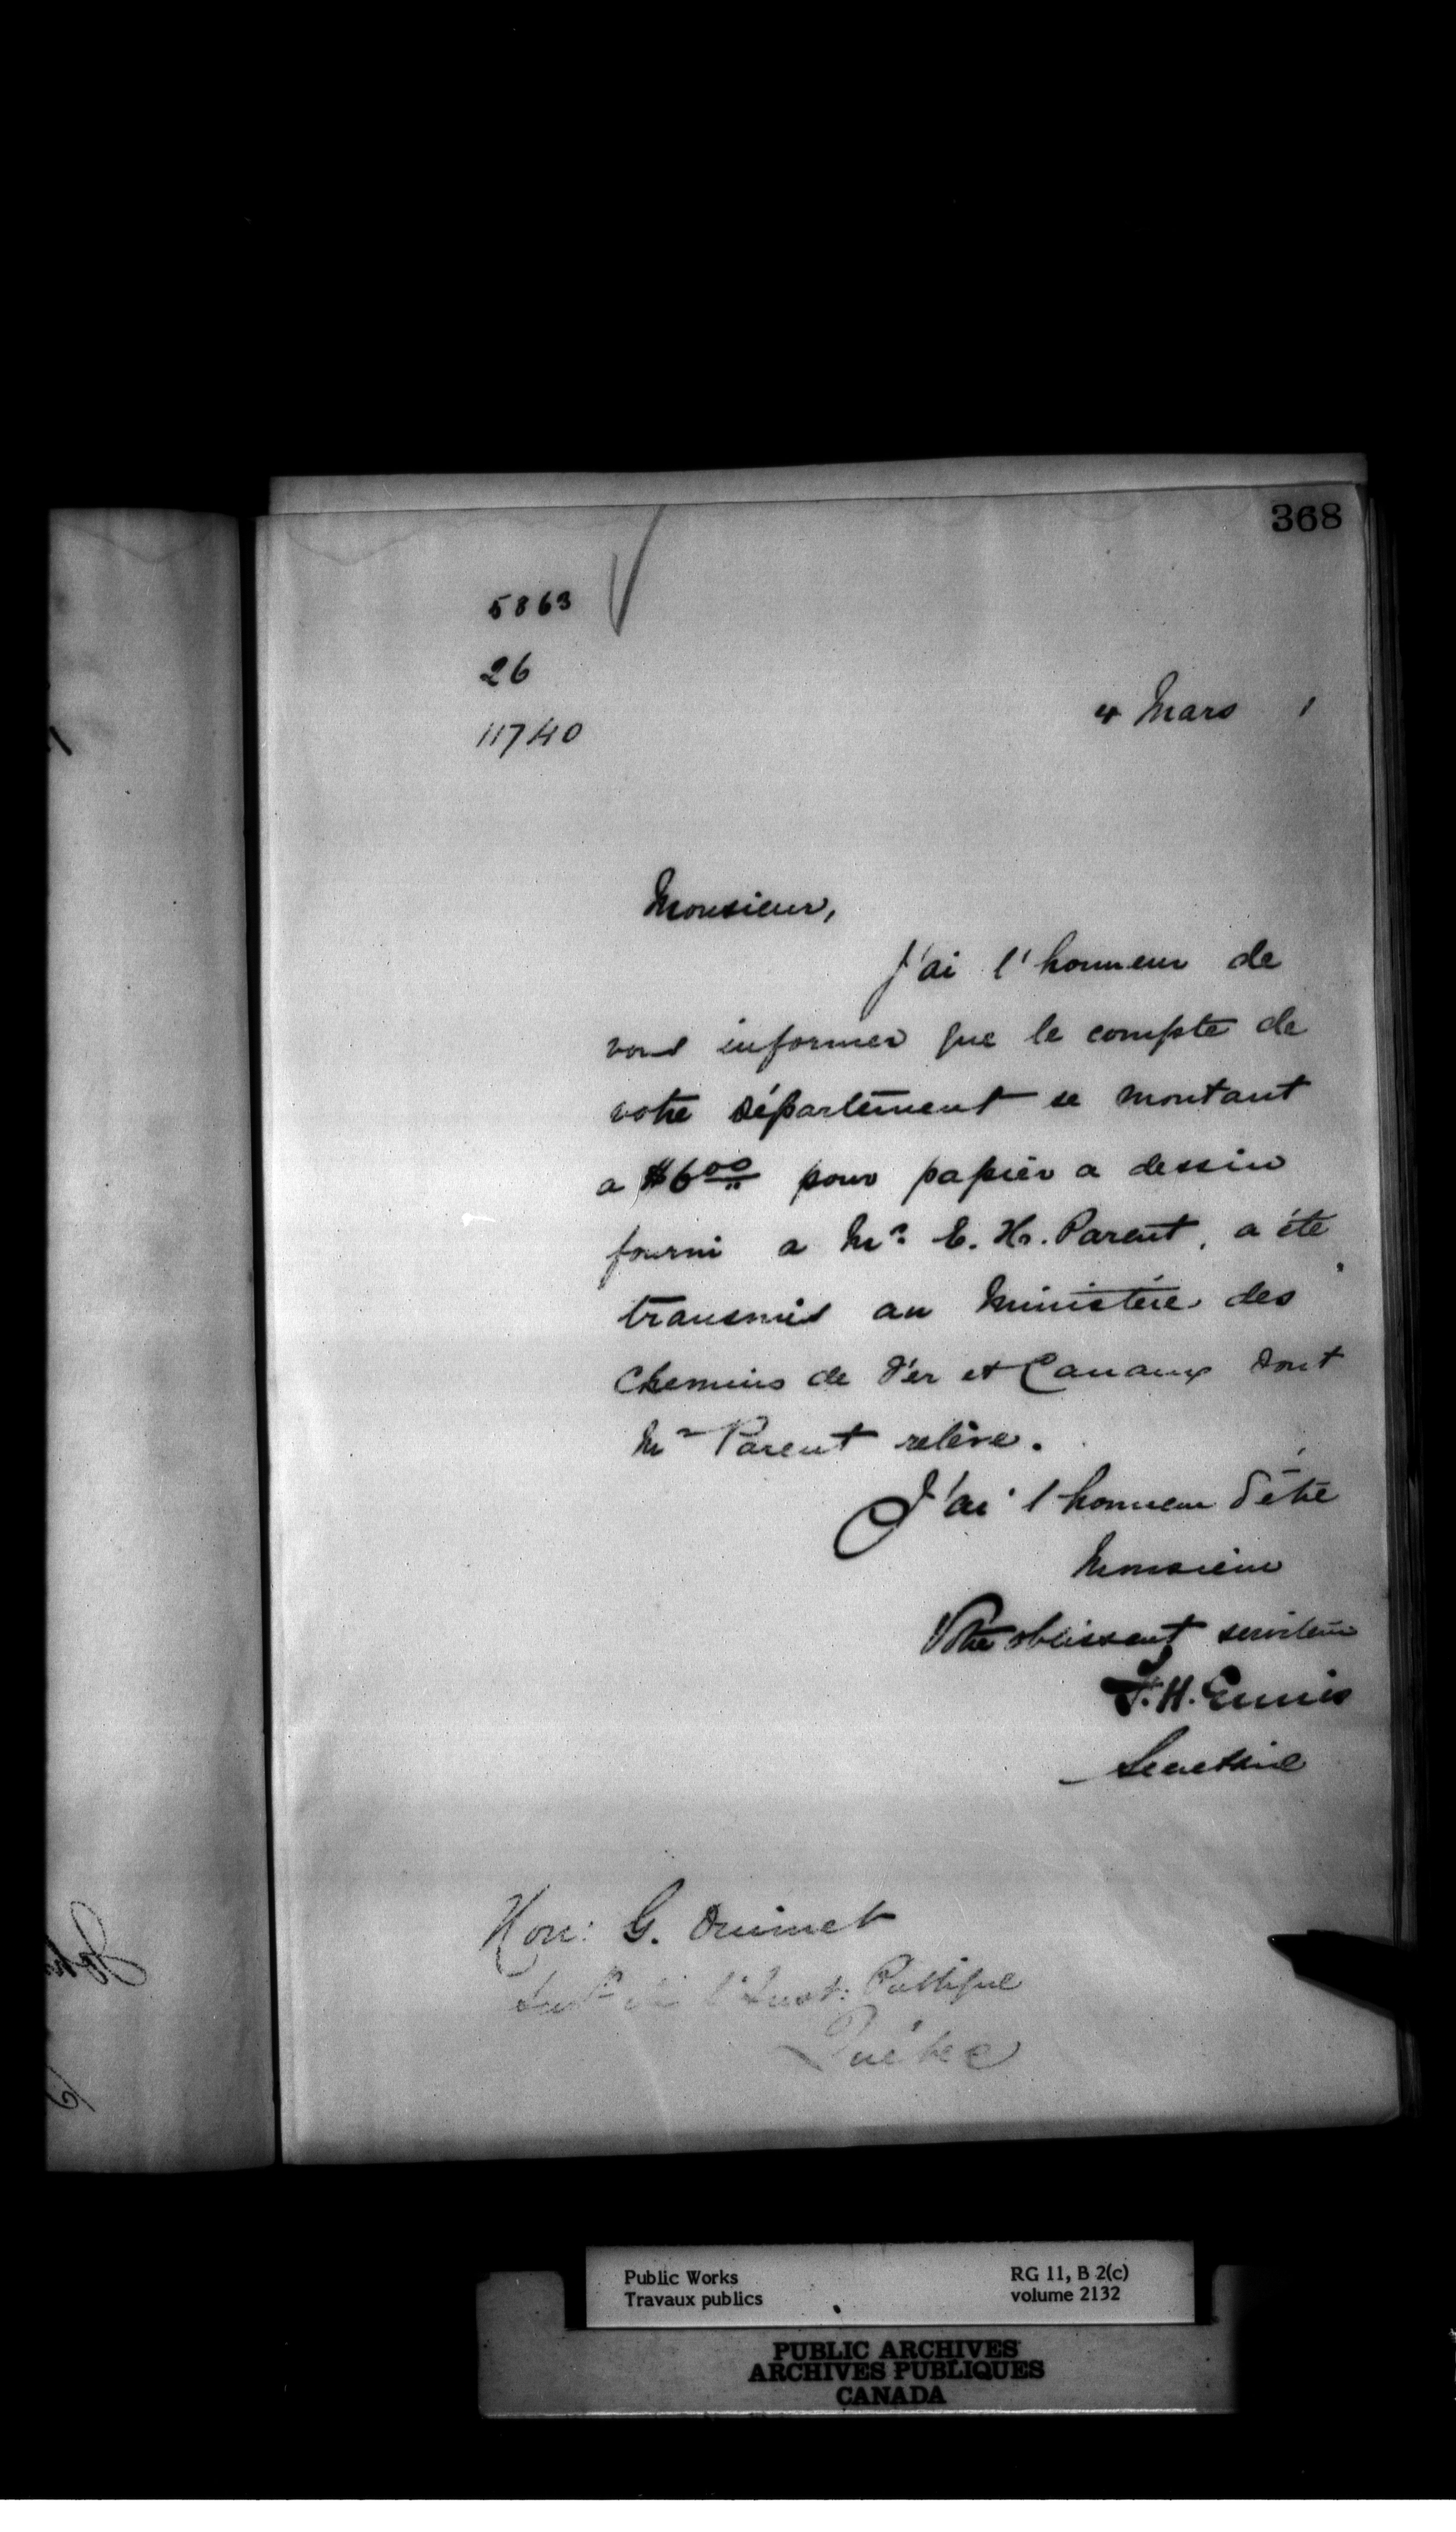 368
5863
26
11740
4 Mars 1
Monsieur,
J'ai l'honneur de
vous informer que le compte de
votre Département se montant
a $6 00 pour papier a dessin
fourni a Mr. E. H. Parent, a été
transmis au Ministère des
Chemins de Fer et Canaux dont
Mr Parent relève.
J'ai l'honneur d'être
Monsieur
Votre obéissant serviteur
F. H. Ennis
Secrétaire
Hon: G. Ouimet
Inst: Publique
Québec
Public Works
Travaux publics
RG 11, B 2(c)
volume 2132
PUBLIC ARCHIVES
ARCHIVES PUBLIQUES
CANADA